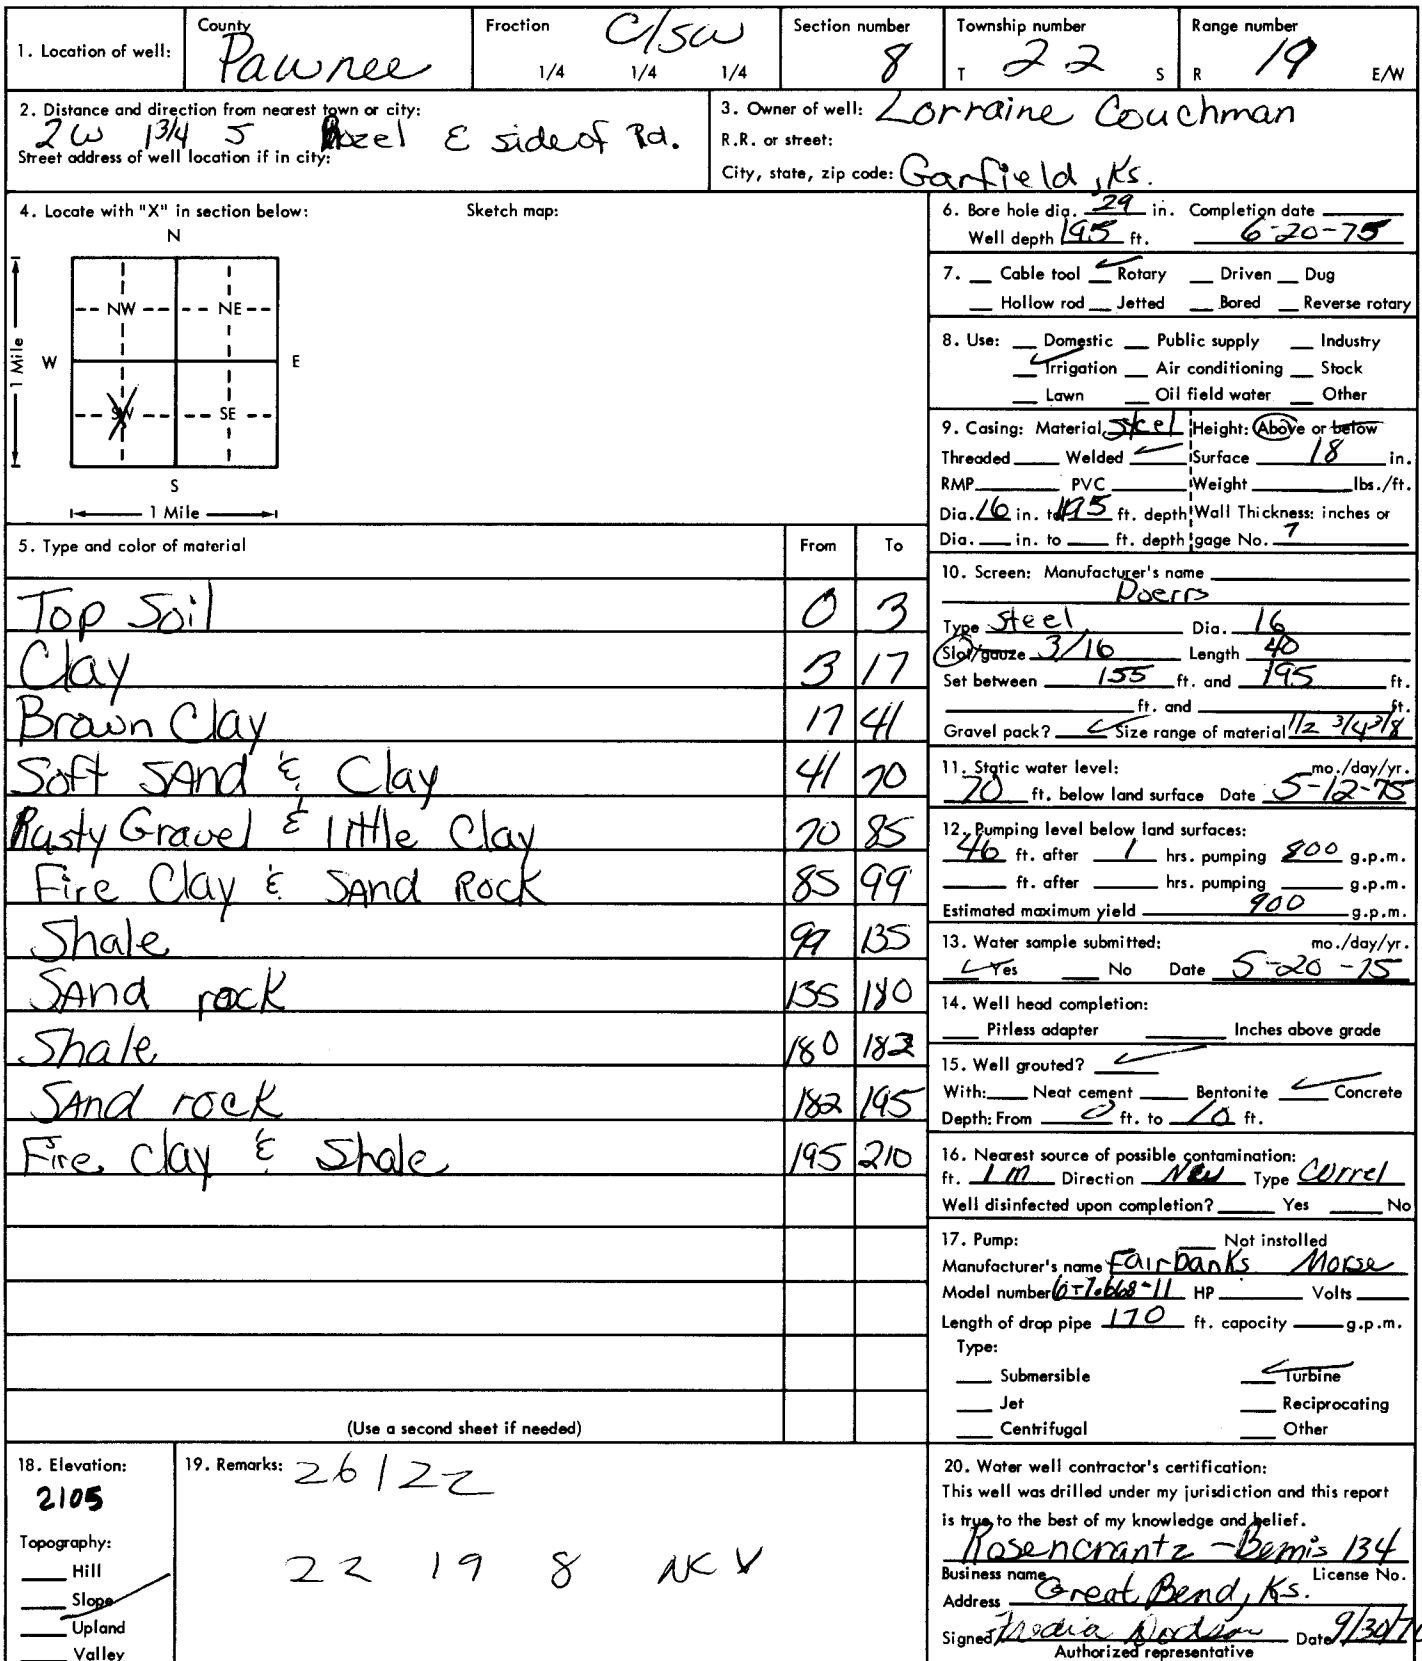 1. Location of well: County Pawnee Fraction C/SW 1/4 1/4 1/4 Section number 8 Township number T 22 S Range number R 19 E/W
2. Distance and direction from nearest town or city:
2W 1 3/4 S Rozel E side of Rd.
Street address of well location if in city:
3. Owner of well: Lorraine Couchman
R.R. or street:
City, state, zip code: Garfield, Ks.
4. Locate with "X" in section below: Sketch map:
N
NW NE
W E
1 Mile
SW SE
S
1 Mile
5. Type and color of material From To
Top Soil 0 3
Clay 3 17
Brown Clay 17 41
Soft SAnd & Clay 41 70
Rusty Gravel & little Clay 70 85
Fire Clay & SAnd Rock 85 99
Shale 99 135
SAnd rock 135 180
Shale 180 182
SAnd rock 182 195
Fire clay & Shale 195 210
(Use a second sheet if needed)
6. Bore hole dia. 29 in. Completion date
Well depth 195 ft. 6-20-75
7. Cable tool ✓ Rotary Driven Dug
Hollow rod Jetted Bored Reverse rotary
8. Use: Domestic Public supply Industry
✓ Irrigation Air conditioning Stock
Lawn Oil field water Other
9. Casing: Material Steel Height: Above or below
Threaded Welded ✓ Surface 18 in.
RMP PVC Weight lbs./ft.
Dia. 16 in. to 195 ft. depth Wall Thickness: inches or
Dia. in. to ft. depth gage No. 7
10. Screen: Manufacturer's name
Doerrs
Type Steel Dia. 16
Slot/gauze 3/16 Length 40
Set between 155 ft. and 195 ft.
ft. and ft.
Gravel pack? ✓ Size range of material 1/2 3/4 3/8
11. Static water level: mo./day/yr.
70 ft. below land surface Date 5-12-75
12. Pumping level below land surfaces:
46 ft. after 1 hrs. pumping 800 g.p.m.
ft. after hrs. pumping g.p.m.
Estimated maximum yield 900 g.p.m.
13. Water sample submitted: mo./day/yr.
✓ Yes No Date 5-20-75
14. Well head completion:
Pitless adapter Inches above grade
15. Well grouted? ✓
With: Neat cement Bentonite ✓ Concrete
Depth: From 0 ft. to 10 ft.
16. Nearest source of possible contamination:
ft. 1 m Direction Type Correl
Well disinfected upon completion? Yes No
17. Pump: Not installed
Manufacturer's name Fairbanks Morse
Model number HP Volts
Length of drop pipe 170 ft. capacity g.p.m.
Type:
Submersible ✓ Turbine
Jet Reciprocating
Centrifugal Other
18. Elevation:
2105
Topography:
Hill
Slope
Upland
Valley
19. Remarks: 26122
22 19 8
20. Water well contractor's certification:
This well was drilled under my jurisdiction and this report
is true to the best of my knowledge and belief.
Rosencrantz - Bemis 134
Business name License No.
Address Great Bend, Ks.
Signed Date 9/30/
Authorized representative